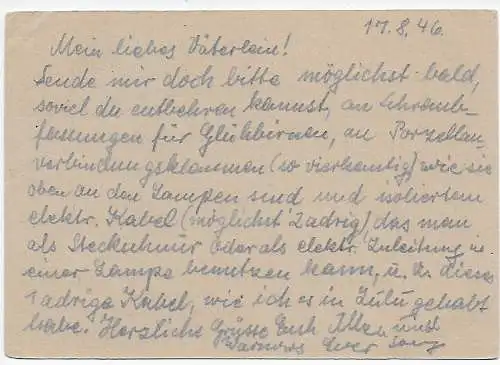 17.8.46.
Mein liebes Väterlein!
Sende mir doch bitte möglichst bald,
soviel du entbehren kannst, an Schraub-
fassungen für Glühbirnen, an Porzellan-
verbindungsklammen (so vierkantig) wie sie
oben an den Lampen sind und isoliertem
elektr. Kabel (möglichst 2adrig) das man
als Steckschnur oder als elektr. Zuleitung in
einer Lampe benutzen kann, u. dieses
1adrige Kabel, wie ich es in gehabt
habe. Herzliche Grüsse Euch Allen und
Euer